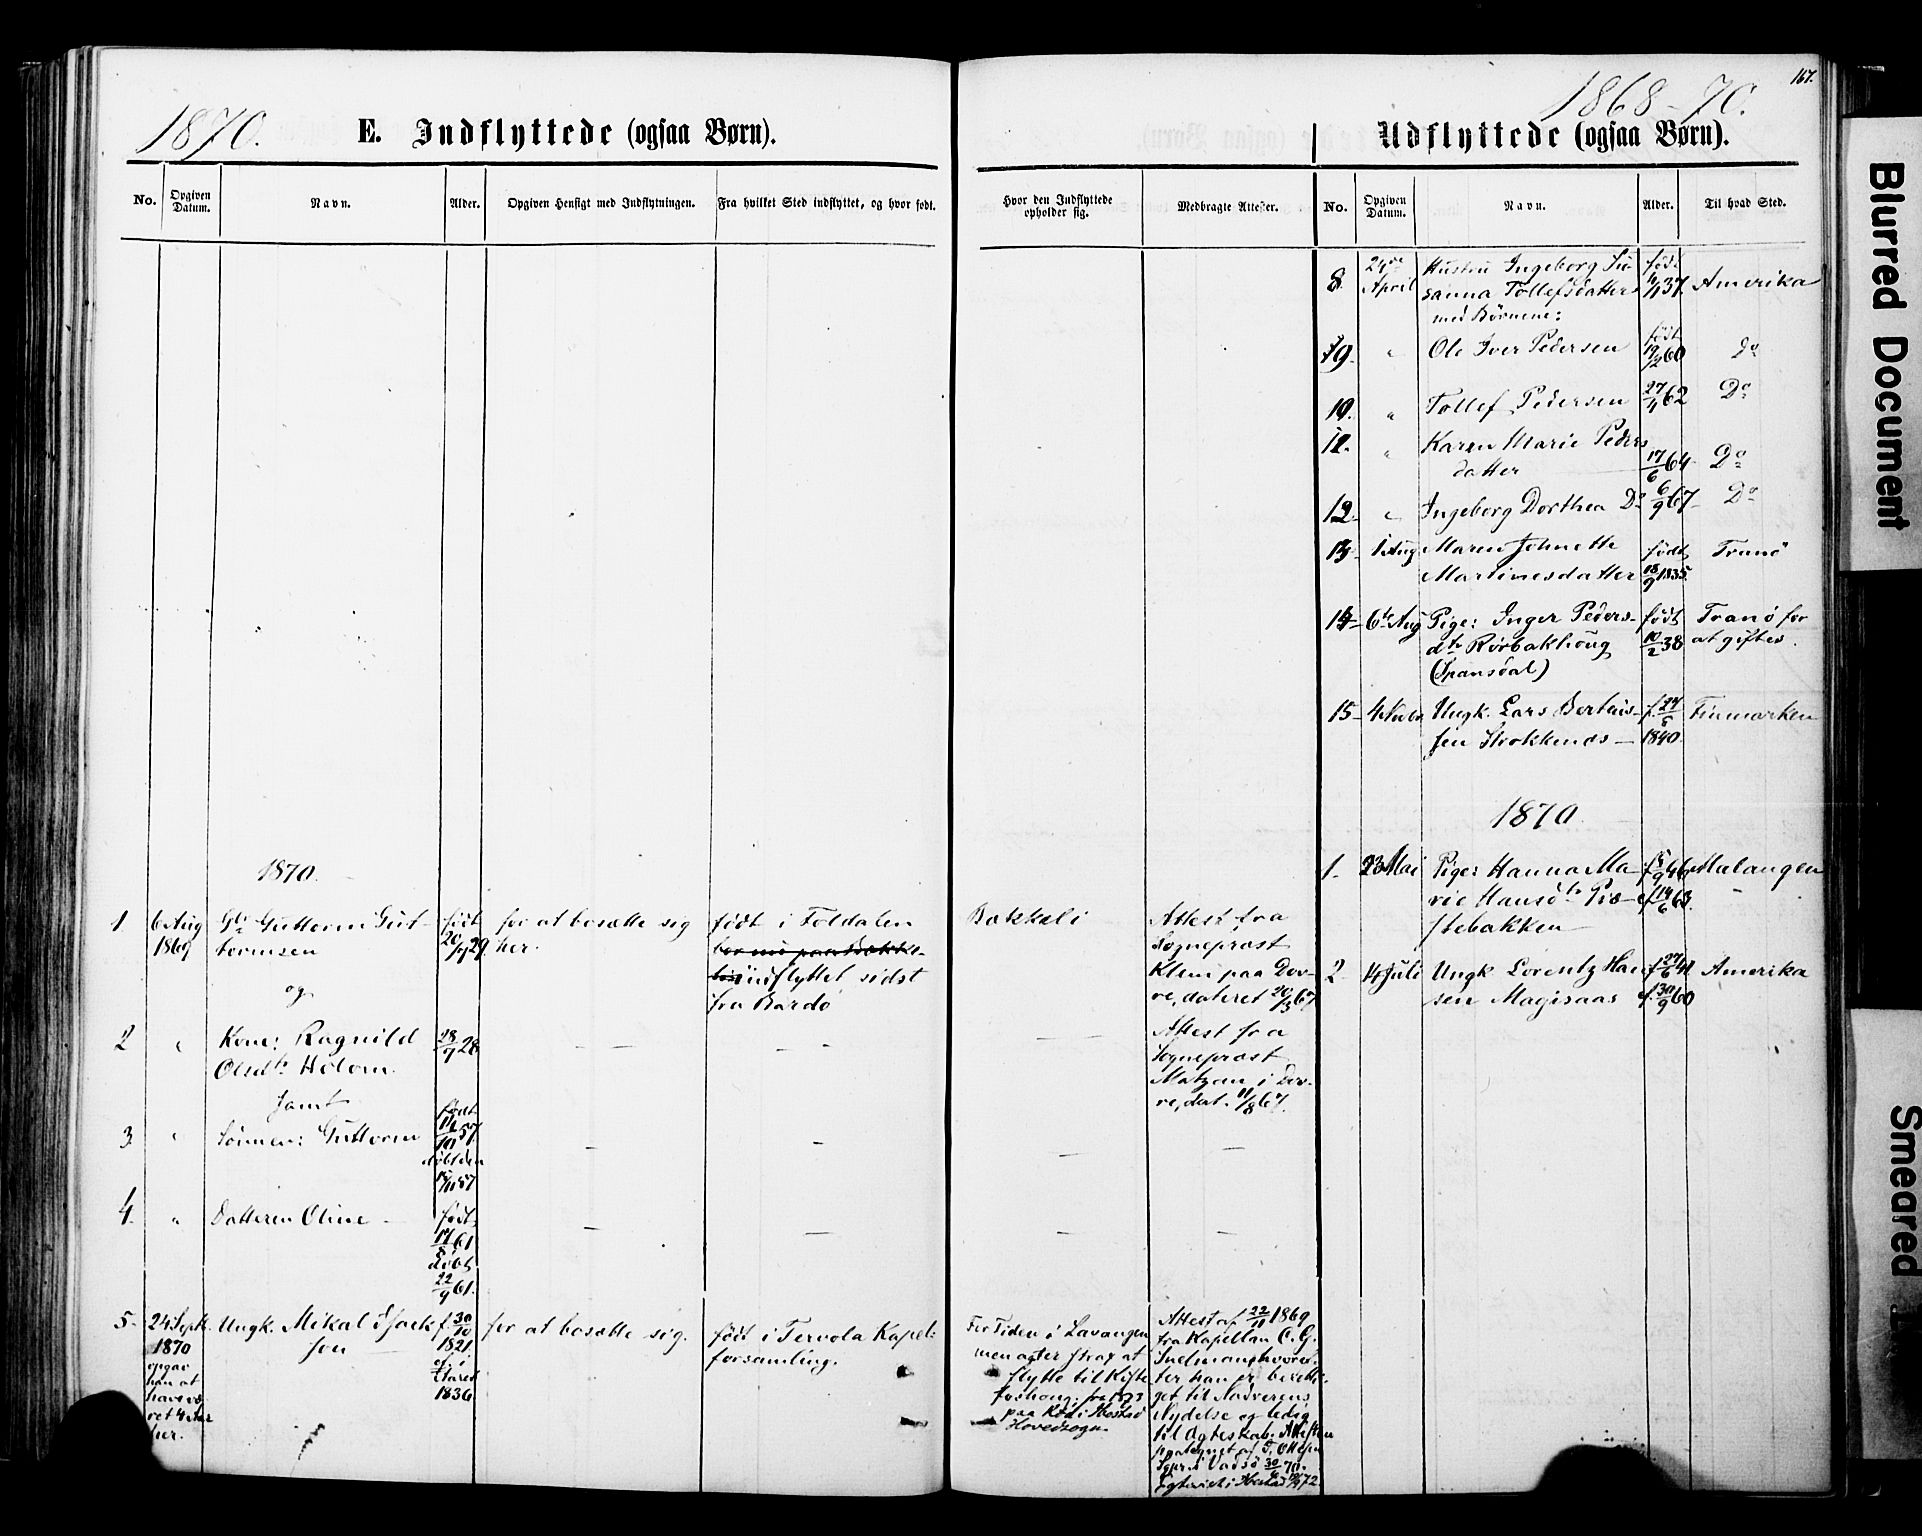 1870.
E. Indflyttede (ogsaa Børn).
No.
Opgiven Datum.
Navn.
Alder.
Opgiven Hensigt med Indflytningen.
Fra hvilket Sted indflyttet, og hvor født.
1870.
1
6 Aug
1869
Guttorm Gut-
tormsen
og
født
20/9 29.
for at bosætte sig
her.
født i Foldalen
indflyttet sidst
fra Bardo
2
"
Kone: Ragnild
Olsdtr Holom.
samt
28/7 28
— —
— —
3
"
Sønnen: Guttorm
født
57
døbt den
57
—
—
4.
"
Datteren Oline —
født
17/8 61
døbt
22/9 61.
—
—
5-
24 Septb.
1870
opgav
han at
have væ-
ret 4 Aar
her.
Ungk. Mikal Isack
son
f. 30/10
1821.
1836
for at bosætte sig.
født i Tervola Kapel:
forsamling.
1868-70.
167.
Udflyttede (ogsaa Børn).
Hvor den Indflyttede opholder sig.
Medbragte Attester.
No.
Opgiven Datum.
Navn.
Alder.
Til hvad Sted.
Bakkeli
Attest fra
Sogneprest
Klem paa Dov-
re, dateret 20/3 67
— —
Attest fra
Sogneprest
Matzau i Dov-
re, dat. 11/8 67.
—
—
—
—
For Tiden i Lavangen
men agter strax at
flytte til
paa
Hovedsogn.
Attest af 22/11 1869
fra Kapellan C. G.
han er beretti-
get til Nadverens
Nydelse og ledig
til Ægteskab. Attesten
paategnet af
Vadsø 30/ 70.
8
24de
April
Hustru Ingeborg Su-
sanna Tollefsdatter
med Børnene:
født
37.
Amerika
9.
"
Ole Iver Pedersen
født
19/12 60
Do
10.
"
Tollef Pedersen
27/4 62
Do
11.
"
Karen Marie Peders
datter
17/6 64
Do
12.
"
Ingeborg Dorthea Do
6/9 67
Do
13
1 Aug
Maren Johnette
Martinesdatter
født
18/9 1835.
Tranø
14
6te Aug
Pige: Inger Peders-
dtr Rørbakhoug
(Spansdal)
født
10/2 38
Tranø for
at giftes.
15-
4 Novbr.
Ungk. Lars Bertheus-
sen Strokkenæs —
f. 24/5
1840.
Finmarken
1870.
1.
23 Mai
Pige: Hanna Ma-
rie Hansdtr Præ-
stebakken
f. 5/9 46
c. 14/6 63.
Malangen
2
14 Juli
Ungk. Lorentz Han-
sen Magisaas
f. 27/6 41
c. 30/9 60
Amerika
Blurred Document
Smeared